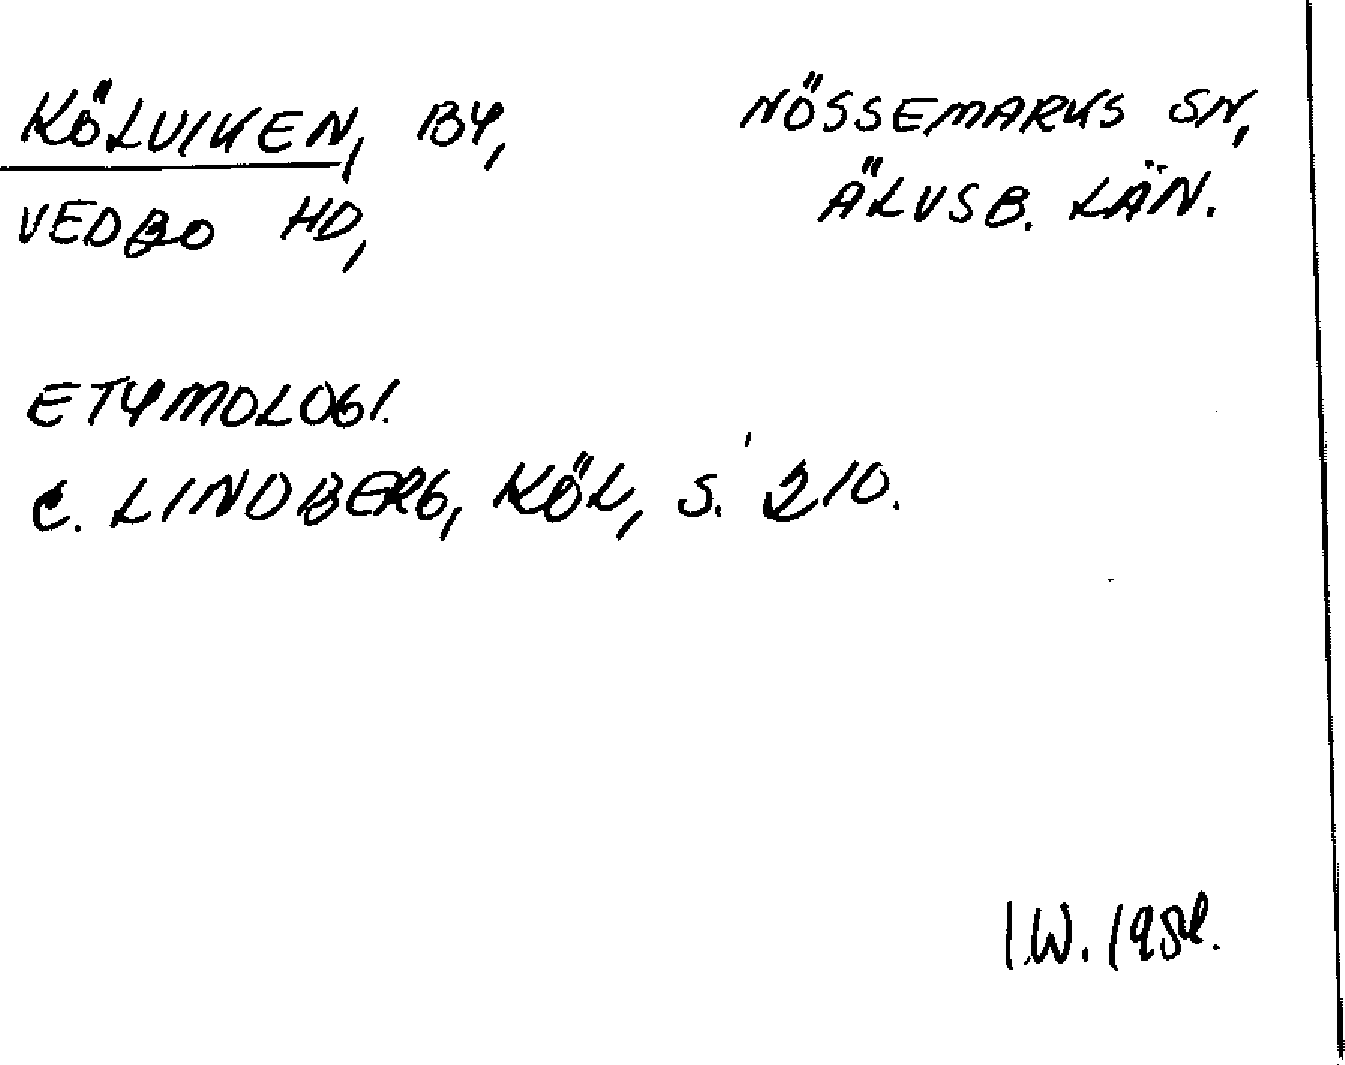 KÖLVIKEN, BY, NÖSSEMARKS SN,
VEDBO HD, ÄLVSB. LÄN.
ETYMOLOGI.
C. LINDBERG, KÖL, S. 210.
I.W.